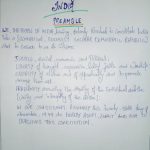 INDIA
PREAMBLE
WE, THE PEOPLE OF INDIA, having solemnly resolved to constitute India
into a SOVEREIGN SOCIALIST SECULAR DEMOCRATIC REPUBLIC
and to secure to all its citizens
JUSTICE, social, economic and political;
LIBERTY of thought, expression, belief, faith and worship
EQUALITY of status and of opportunity and to promote
among them all
FRATERNITY assuring the dignity of the individual and the
unity and integrity of the Nation;
IN OUR CONSTITUENT ASSEMBLY this twenty sixth day of
november, 1949 do HEREBY ADOPT, ENACT AND GIVE TO
OURSELVES THIS CONSTITUTION.